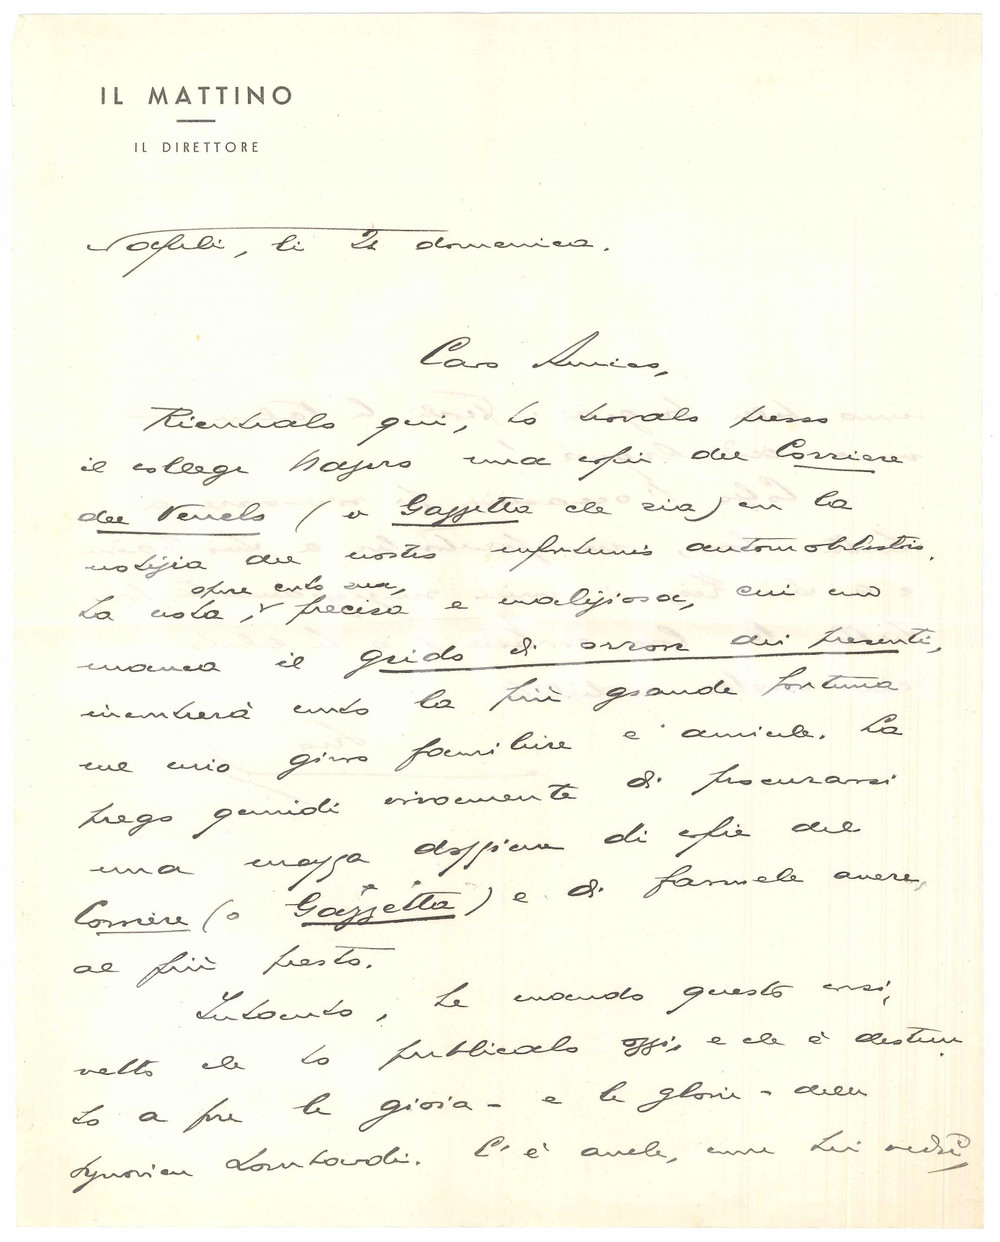 IL MATTINO
IL DIRETTORE
Napoli, li 21 domenica.
Caro Amico,
Rientrato qui, ho trovato presso
il collega una copia del Corriere
del Veneto (o Gazzetta che sia) con la
notizia del nostro infortunio automobilistico.
opera certo sua,
La nota, precisa e maliziosa, cui non
manca il grido di orrore dei presenti,
incontrerà certo la più grande fortuna
nel mio giro familiare e amicale. La
prego quindi vivamente di procurarsi
una mezza dozzina di copie del
Corriere (o Gazzetta) e di farmele avere,
al più presto.
Intanto, Le mando questo corsi,
vetto che ho pubblicato oggi, e che è destina
to a fare la gioia - e la gloria - della
signorina Lombardi. C'è anche, come Lei vedrà,